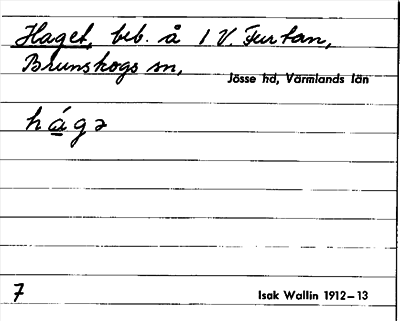 Haget, beb. å 1 V. Furtan,
Brunskogs sn,
Jösse hd, Värmlands län
hágə
7
Isak Wallin 1912–13